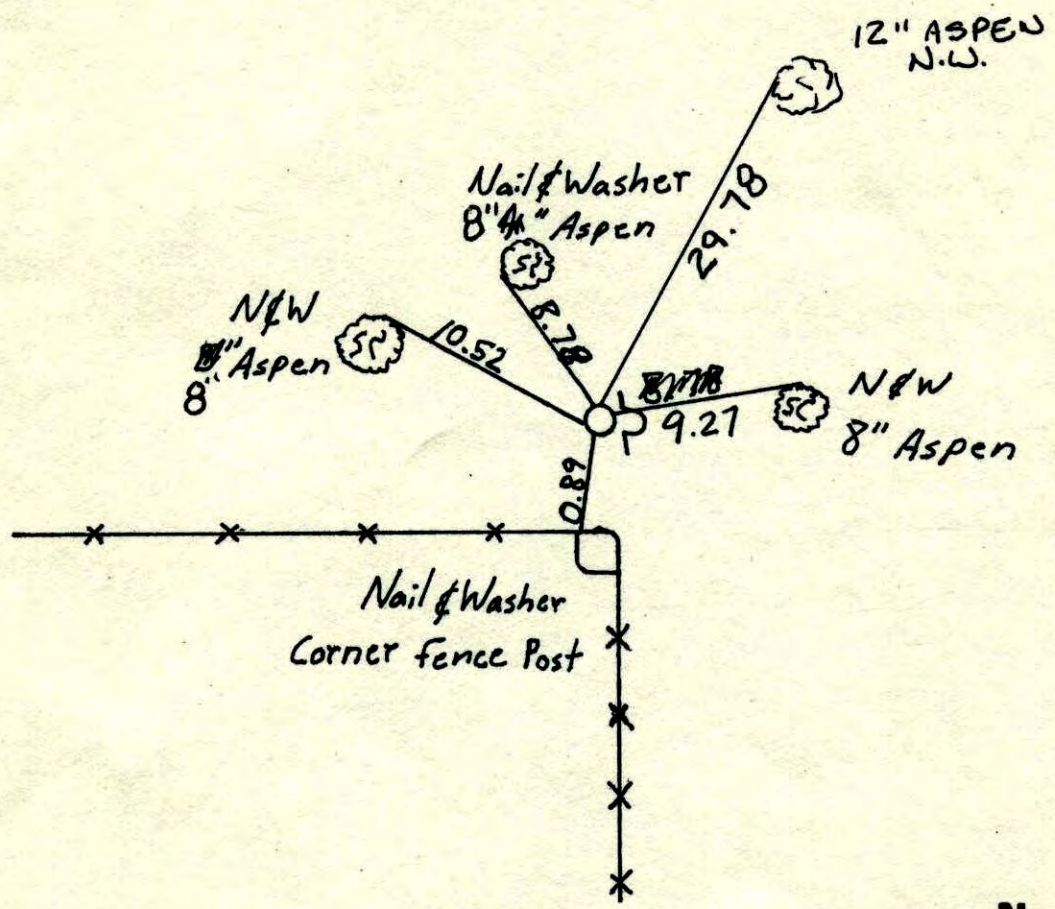 12" ASPEN
N.W.
Nail & Washer
8" Aspen
29.78
N&W
" Aspen
8"
10.52
8.78
N&W
9.27
8" Aspen
0.89
Nail & Washer
Corner fence Post
N